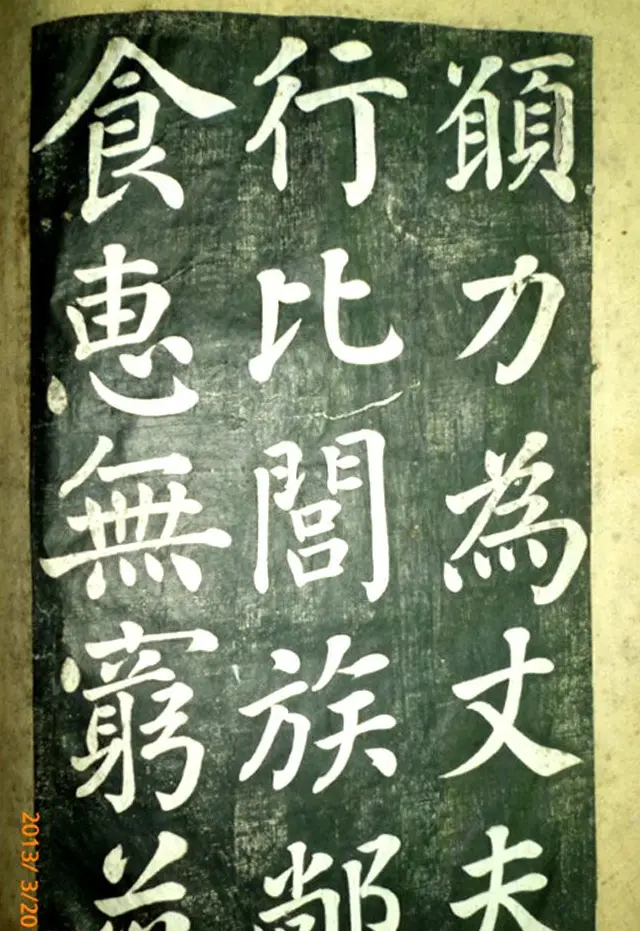 願力為丈夫
行比閭族
食惠無窮
2013/ 3/20